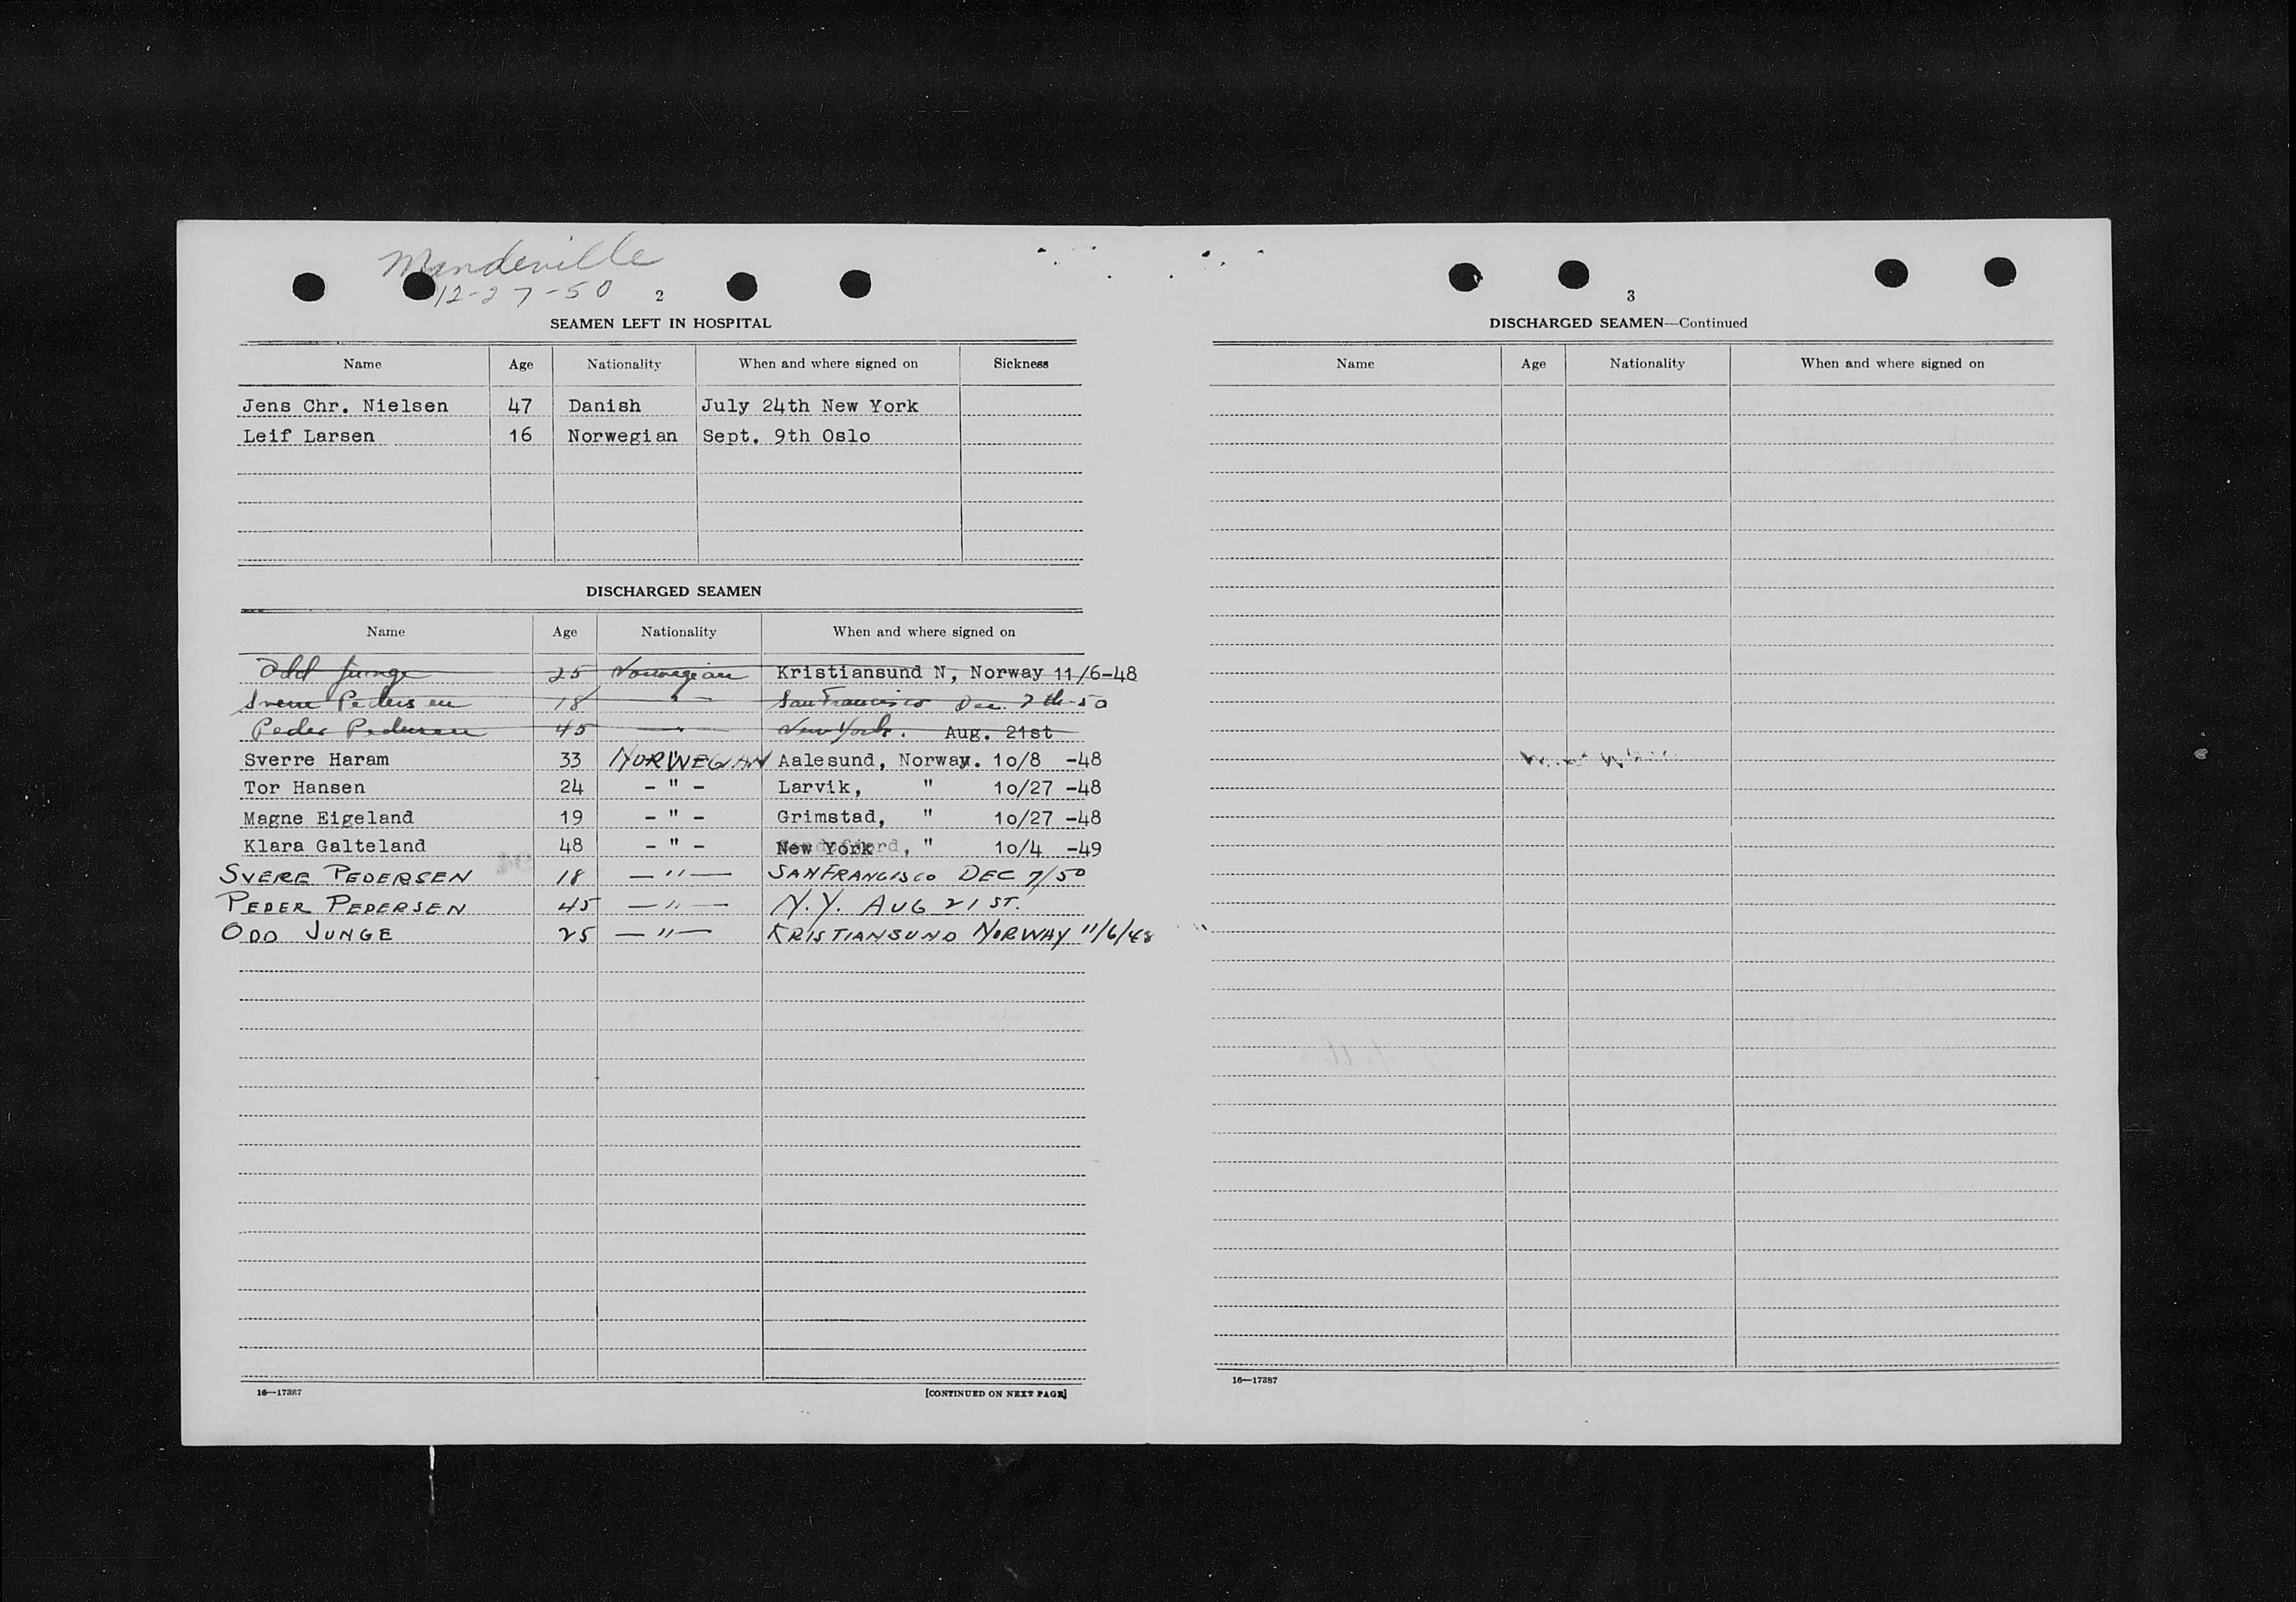 Mandeville
12-27-50
2
SEAMEN LEFT IN HOSPITAL
Name Age Nationality When and where signed on Sickness
Jens Chr. Nielsen 47 Danish July 24th New York
Leif Larsen 16 Norwegian Sept. 9th Oslo
DISCHARGED SEAMEN
Name Age Nationality When and where signed on
Odd Junge 25 Norwegian Kristiansund N, Norway 11/6-48
Sverre Pedersen 18 " San Francisco Dec. 7th-50
Peder Pedersen 45 " New York. Aug. 21st
Sverre Haram 33 NORWEGIAN Aalesund, Norway. 10/8 -48
Tor Hansen 24 - " - Larvik, " 10/27 -48
Magne Eigeland 19 - " - Grimstad, " 10/27 -48
Klara Galteland 48 - " - New York, " 10/4 -49
SVERE PEDERSEN 18 — " — SANFRANCISCO DEC 7/50
PEDER PEDERSEN 45 — " — N.Y. AUG 21 ST.
ODD JUNGE 25 — " — KRISTIANSUND NORWAY 11/6/48
16—17387
[CONTINUED ON NEXT PAGE]
3
DISCHARGED SEAMEN—Continued
Name Age Nationality When and where signed on
16—17387